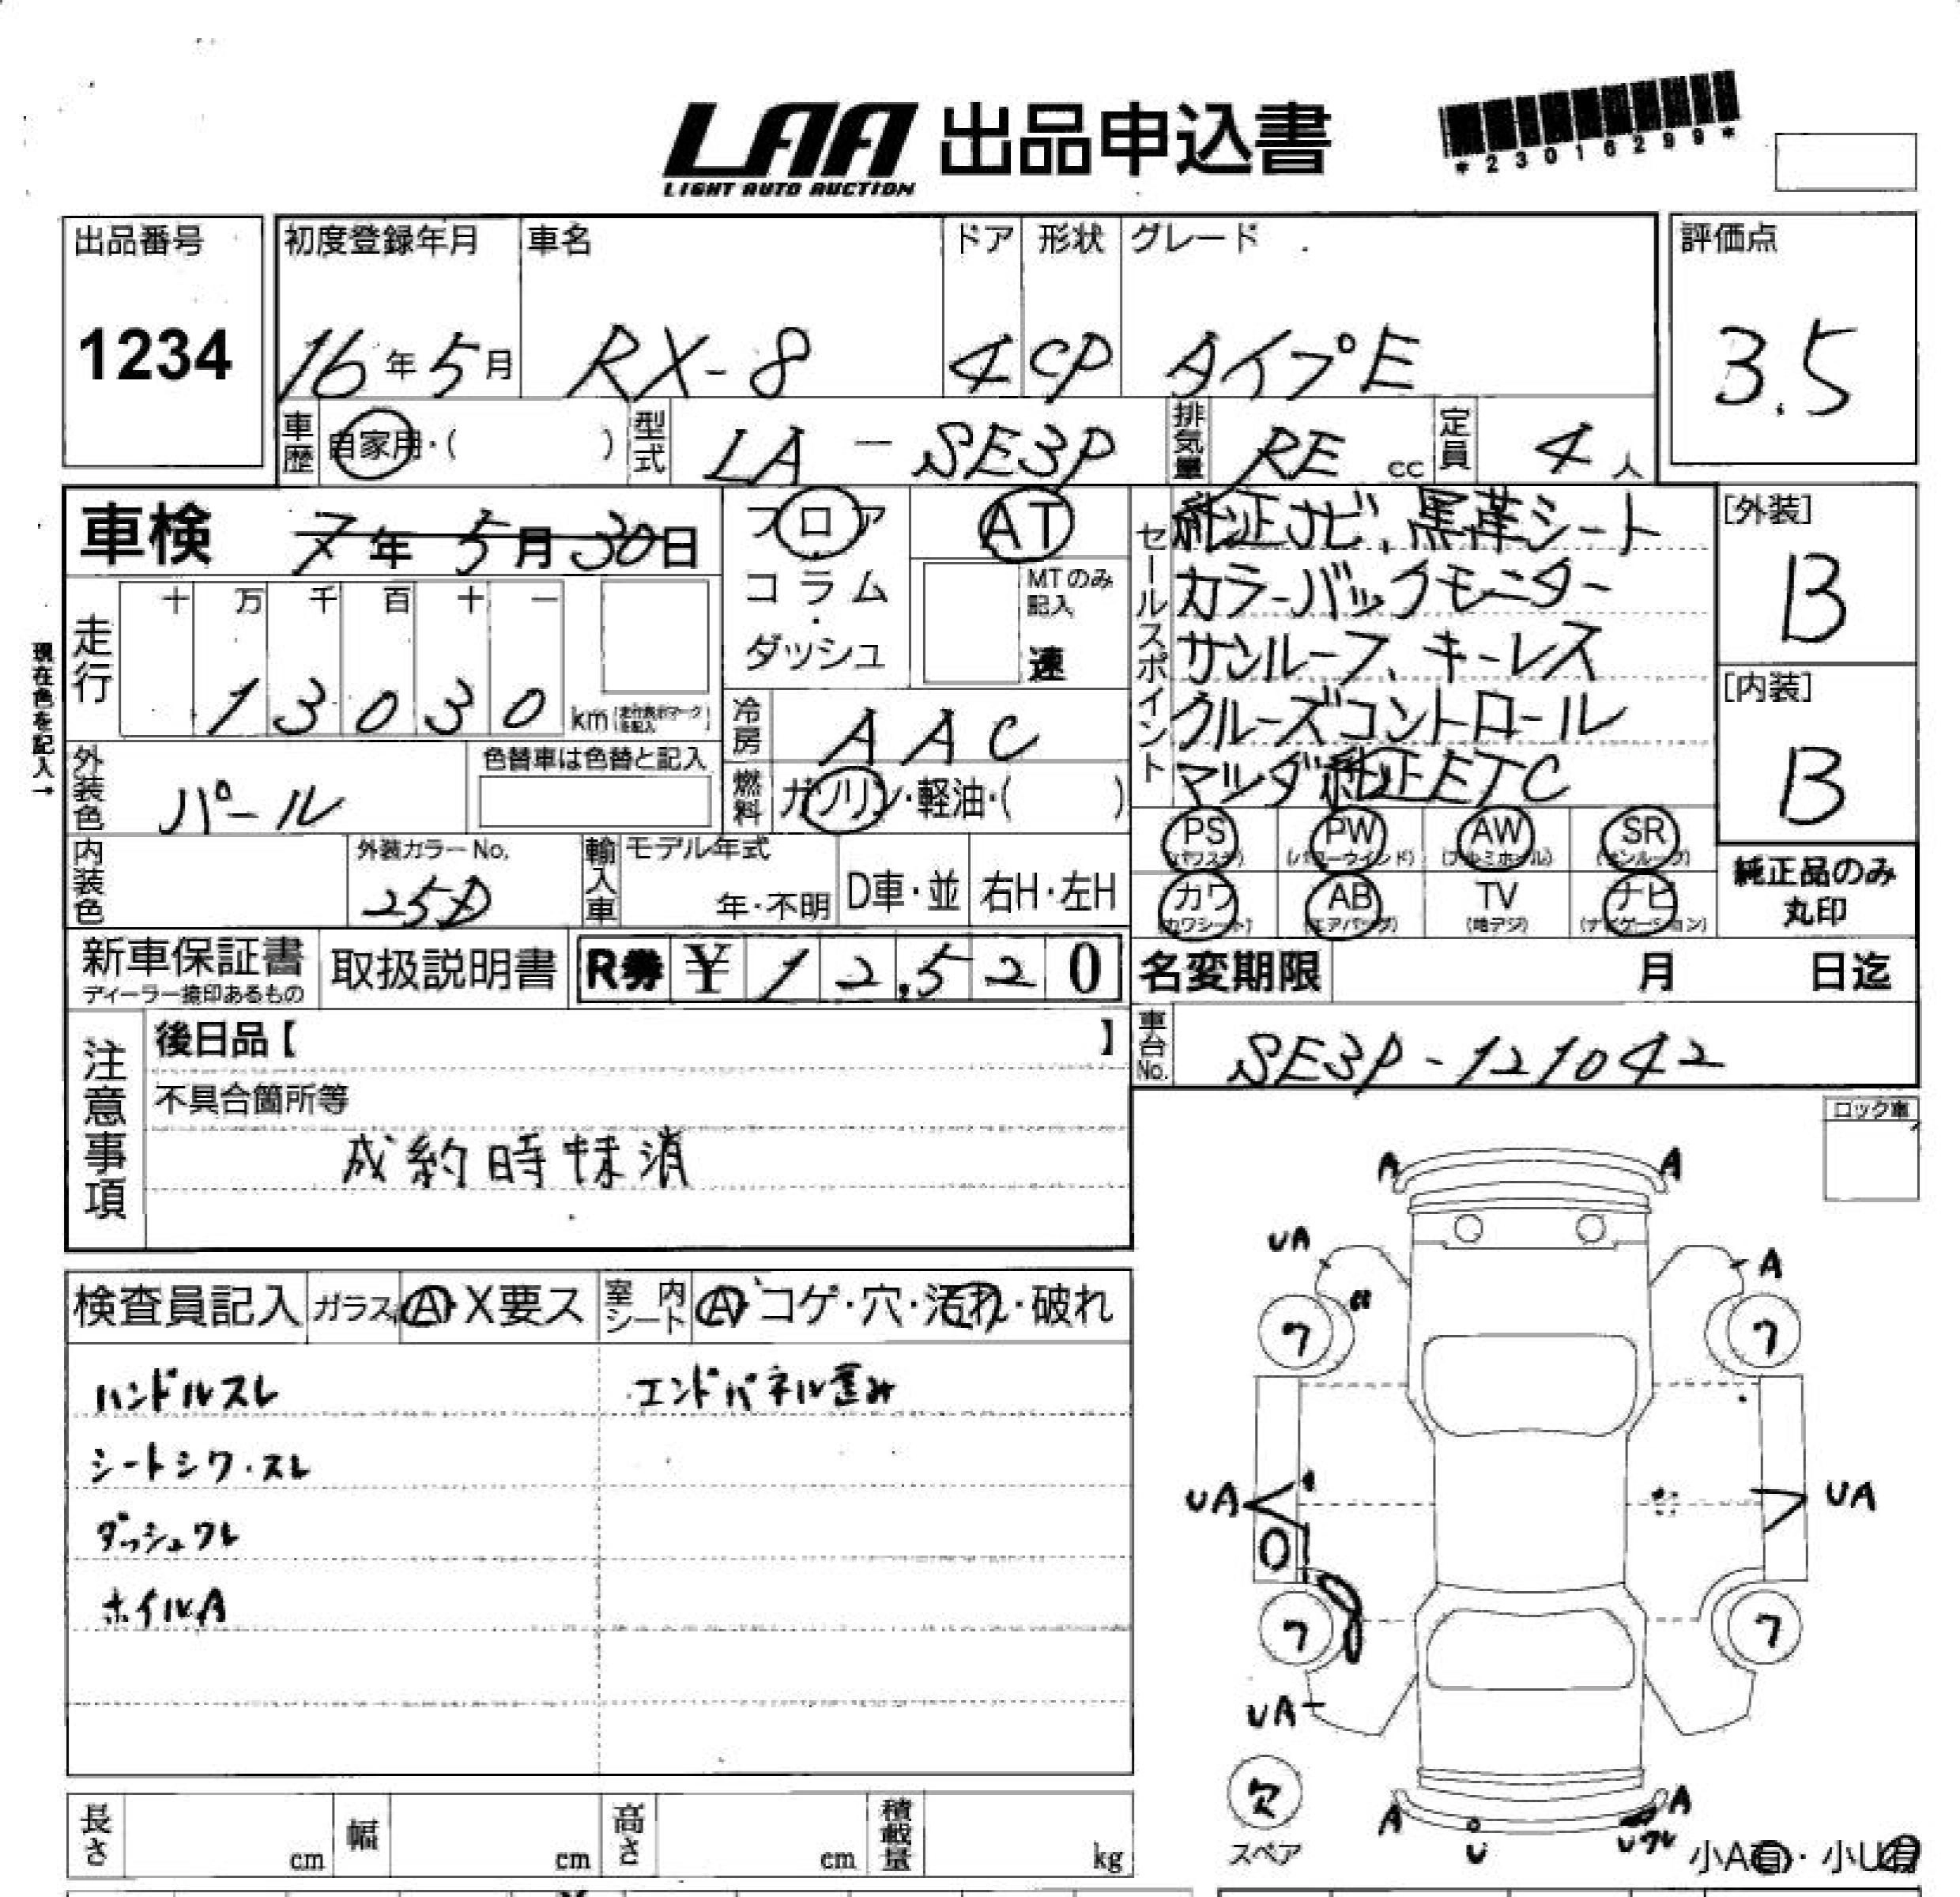 LAA 出品申込書
LIGHT AUTO AUCTION
*23016299*
出品番号 初度登録年月 車名 ドア 形状 グレード 評価点
1234 16年5月 RX-8 4 CP タイプE 3.5
車歴 自家用・( ) 型式 LA - SE3P 排気量 RE cc 定員 4人
車検 7年 5月 30日
フロア・コラム・ダッシュ
AT
MTのみ記入
速
セールスポイント
純正ナビ、黒革シート
カラーバックモニター
サンルーフ、キーレス
クルーズコントロール
マツダ純正ETC
[外装]
B
[内装]
B
現在色を記入→
走行 十 万 千 百 十 一
13030 km
冷房 AAC
外装色 パール 色替車は色替と記入
燃料 ガソリン・軽油・( )
内装色 外装カラーNo. 25D 輸入車 モデル年式 年・不明 D車・並 右H・左H
PS (パワステ) PW (パワーウインド) AW (アルミホイル) SR (サンルーフ)
カワ (カワシート) AB (エアバッグ) TV (地デジ) ナビ (ナビゲーション)
純正品のみ
丸印
新車保証書 取扱説明書 R券 ¥12,520
ディーラー捺印あるもの
名変期限 月 日迄
車台No. SE3P-121042
注意事項
後日品【 】
不具合箇所等
成約時抹消
ロック車
検査員記入 ガラス A・X要ス 室内シート A・コゲ・穴・汚れ・破れ
ハンドルスレ エンドパネル歪み
シートシワ・スレ
ダッシュワレ
ホイルA
A A
UA A
ワ ワ
UA UA
ワ ワ
UA
欠
スペア
A A
U Uワレ
小A有・小U有
長さ cm 幅 cm 高さ cm 積載量 kg